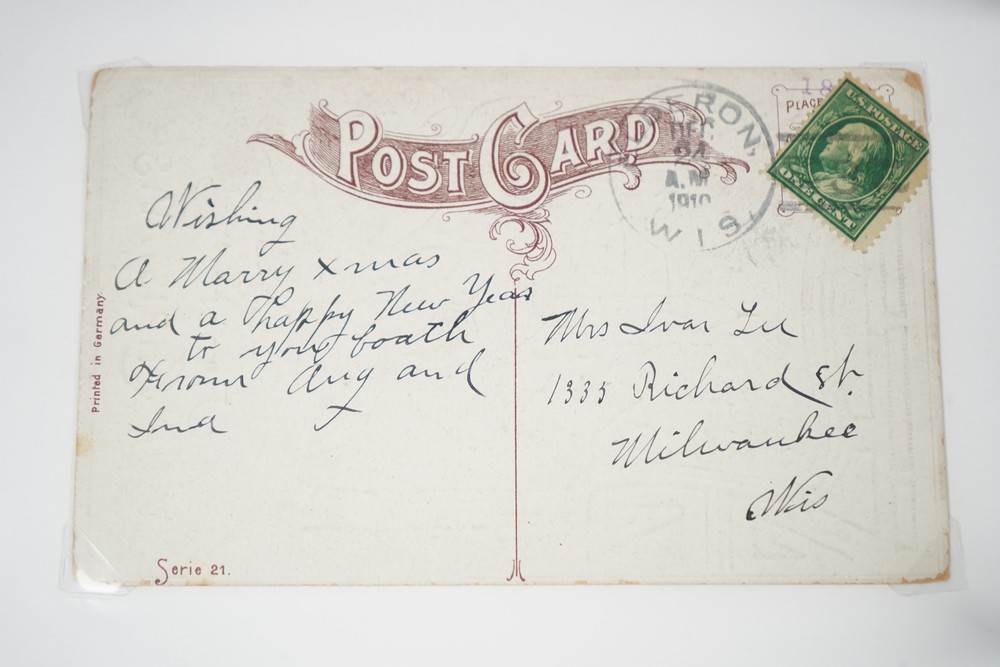 POST CARD
ERON,
DEC
24
A.M
1910
WIS.
18
PLACE
U.S. POSTAGE
ONE CENT
Wishing
A Marry Xmas
and a happy New Year
to you boath
Frome Aug and
Mrs Ivar Lee
1335 Richard St.
Milwaukee
Wis
Printed in Germany.
Serie 21.